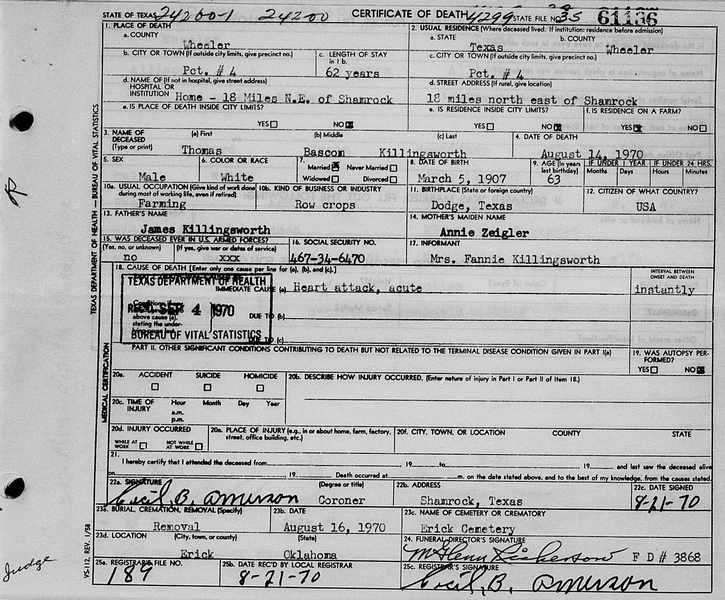 STATE OF TEXAS 242001 24200 CERTIFICATE OF DEATH 4299 STATE FILE NO. 35 61136
1. PLACE OF DEATH 2. USUAL RESIDENCE (Where deceased lived. If institution: residence before admission)
a. COUNTY Wheeler a. STATE Texas b. COUNTY Wheeler
b. CITY OR TOWN (If outside city limits, give precinct no.) c. LENGTH OF STAY in 1 b. c. CITY OR TOWN (If outside city limits, give precinct no.)
Pct. # 4 62 years Pct. # 4
d. NAME OF (If not in hospital, give street address) HOSPITAL OR INSTITUTION d. STREET ADDRESS (If rural, give location)
Home - 18 Miles N.E. of Shamrock 18 miles north east of Shamrock
e. IS PLACE OF DEATH INSIDE CITY LIMITS? e. IS RESIDENCE INSIDE CITY LIMITS? f. IS RESIDENCE ON A FARM?
YES NO YES NO YES NO
3. NAME OF DECEASED (Type or print) (a) First (b) Middle (c) Last 4. DATE OF DEATH
Thomas Bascom Killingsworth August 14, 1970
5. SEX 6. COLOR OR RACE 7. Married Never Married Widowed Divorced 8. DATE OF BIRTH 9. AGE (In years last birthday) IF UNDER 1 YEAR Months Days IF UNDER 24 HRS. Hours Minutes
Male White March 5, 1907 63
10a. USUAL OCCUPATION (Give kind of work done during most of working life, even if retired) 10b. KIND OF BUSINESS OR INDUSTRY 11. BIRTHPLACE (State or foreign country) 12. CITIZEN OF WHAT COUNTRY?
Farming Row crops Dodge, Texas USA
13. FATHER'S NAME 14. MOTHER'S MAIDEN NAME
James Killingsworth Annie Zeigler
15. WAS DECEASED EVER IN U.S. ARMED FORCES? (Yes, no, or unknown) (If yes, give war or dates of service) 16. SOCIAL SECURITY NO. 17. INFORMANT
no xxx 467-34-6470 Mrs. Fannie Killingsworth
18. CAUSE OF DEATH [Enter only one cause per line for (a), (b), and (c).] INTERVAL BETWEEN ONSET AND DEATH
TEXAS DEPARTMENT OF HEALTH
IMMEDIATE CAUSE (a) Heart attack, acute instantly
REC'D SEP 4 1970
above cause (a), stating the under-
DUE TO (b)
DUE TO (c)
BUREAU OF VITAL STATISTICS
PART II. OTHER SIGNIFICANT CONDITIONS CONTRIBUTING TO DEATH BUT NOT RELATED TO THE TERMINAL DISEASE CONDITION GIVEN IN PART I(a) 19. WAS AUTOPSY PERFORMED?
YES NO
20a. ACCIDENT SUICIDE HOMICIDE 20b. DESCRIBE HOW INJURY OCCURRED. (Enter nature of injury in Part I or Part II of Item 18.)
20c. TIME OF INJURY Hour a.m. p.m. Month Day Year
20d. INJURY OCCURRED WHILE AT WORK NOT WHILE AT WORK 20e. PLACE OF INJURY (e.g., in or about home, farm, factory, street, office building, etc.) 20f. CITY, TOWN, OR LOCATION COUNTY STATE
21. I hereby certify that I attended the deceased from 19 to 19 and last saw the deceased alive
on 19 Death occurred at m. on the date stated above, and to the best of my knowledge, from the causes stated.
22a. SIGNATURE (Degree or title) 22b. ADDRESS 22c. DATE SIGNED
Cecil B. Amerson Coroner Shamrock, Texas 8-21-70
23a. BURIAL, CREMATION, REMOVAL (Specify) 23b. DATE 23c. NAME OF CEMETERY OR CREMATORY
Removal August 16, 1970 Erick Cemetery
23d. LOCATION (City, town, or county) (State) 24. FUNERAL DIRECTOR'S SIGNATURE
Erick Oklahoma F D # 3868
25a. REGISTRAR'S FILE NO. 25b. DATE REC'D BY LOCAL REGISTRAR 25c. REGISTRAR'S SIGNATURE
189 8-21-70 Cecil, B. Amerson
TEXAS DEPARTMENT OF HEALTH — BUREAU OF VITAL STATISTICS
MEDICAL CERTIFICATION
VS-112, REV. 1/58
Judge